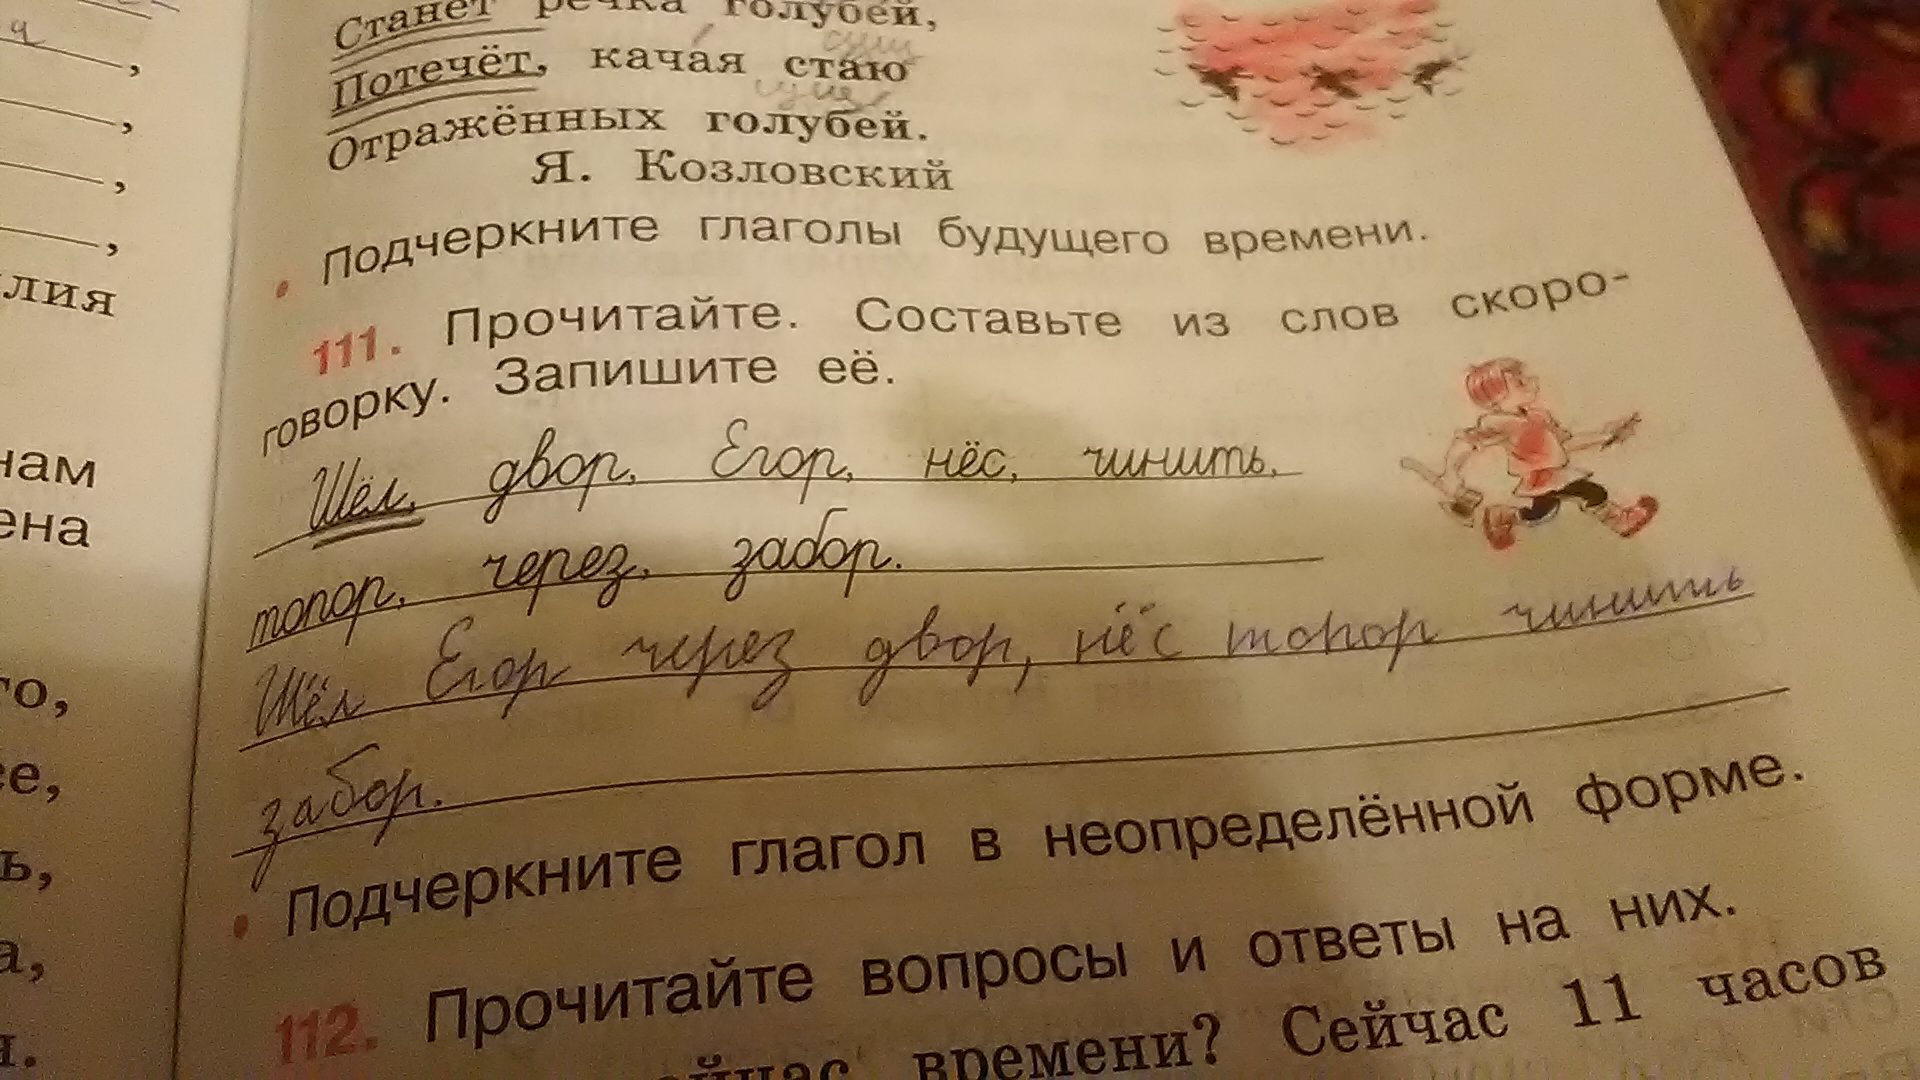 Станет речка голубей,
сущ
Потечёт, качая стаю
сущ
Отражённых голубей.
Я. Козловский
• Подчеркните глаголы будущего времени.
111. Прочитайте. Составьте из слов скоро-
говорку. Запишите её.
Шёл, двор, Егор, нёс, чинить,
топор, через, забор.
Шёл Егор через двор, нёс топор чинить
забор.
• Подчеркните глагол в неопределённой форме.
112. Прочитайте вопросы и ответы на них.
времени? Сейчас 11 часов